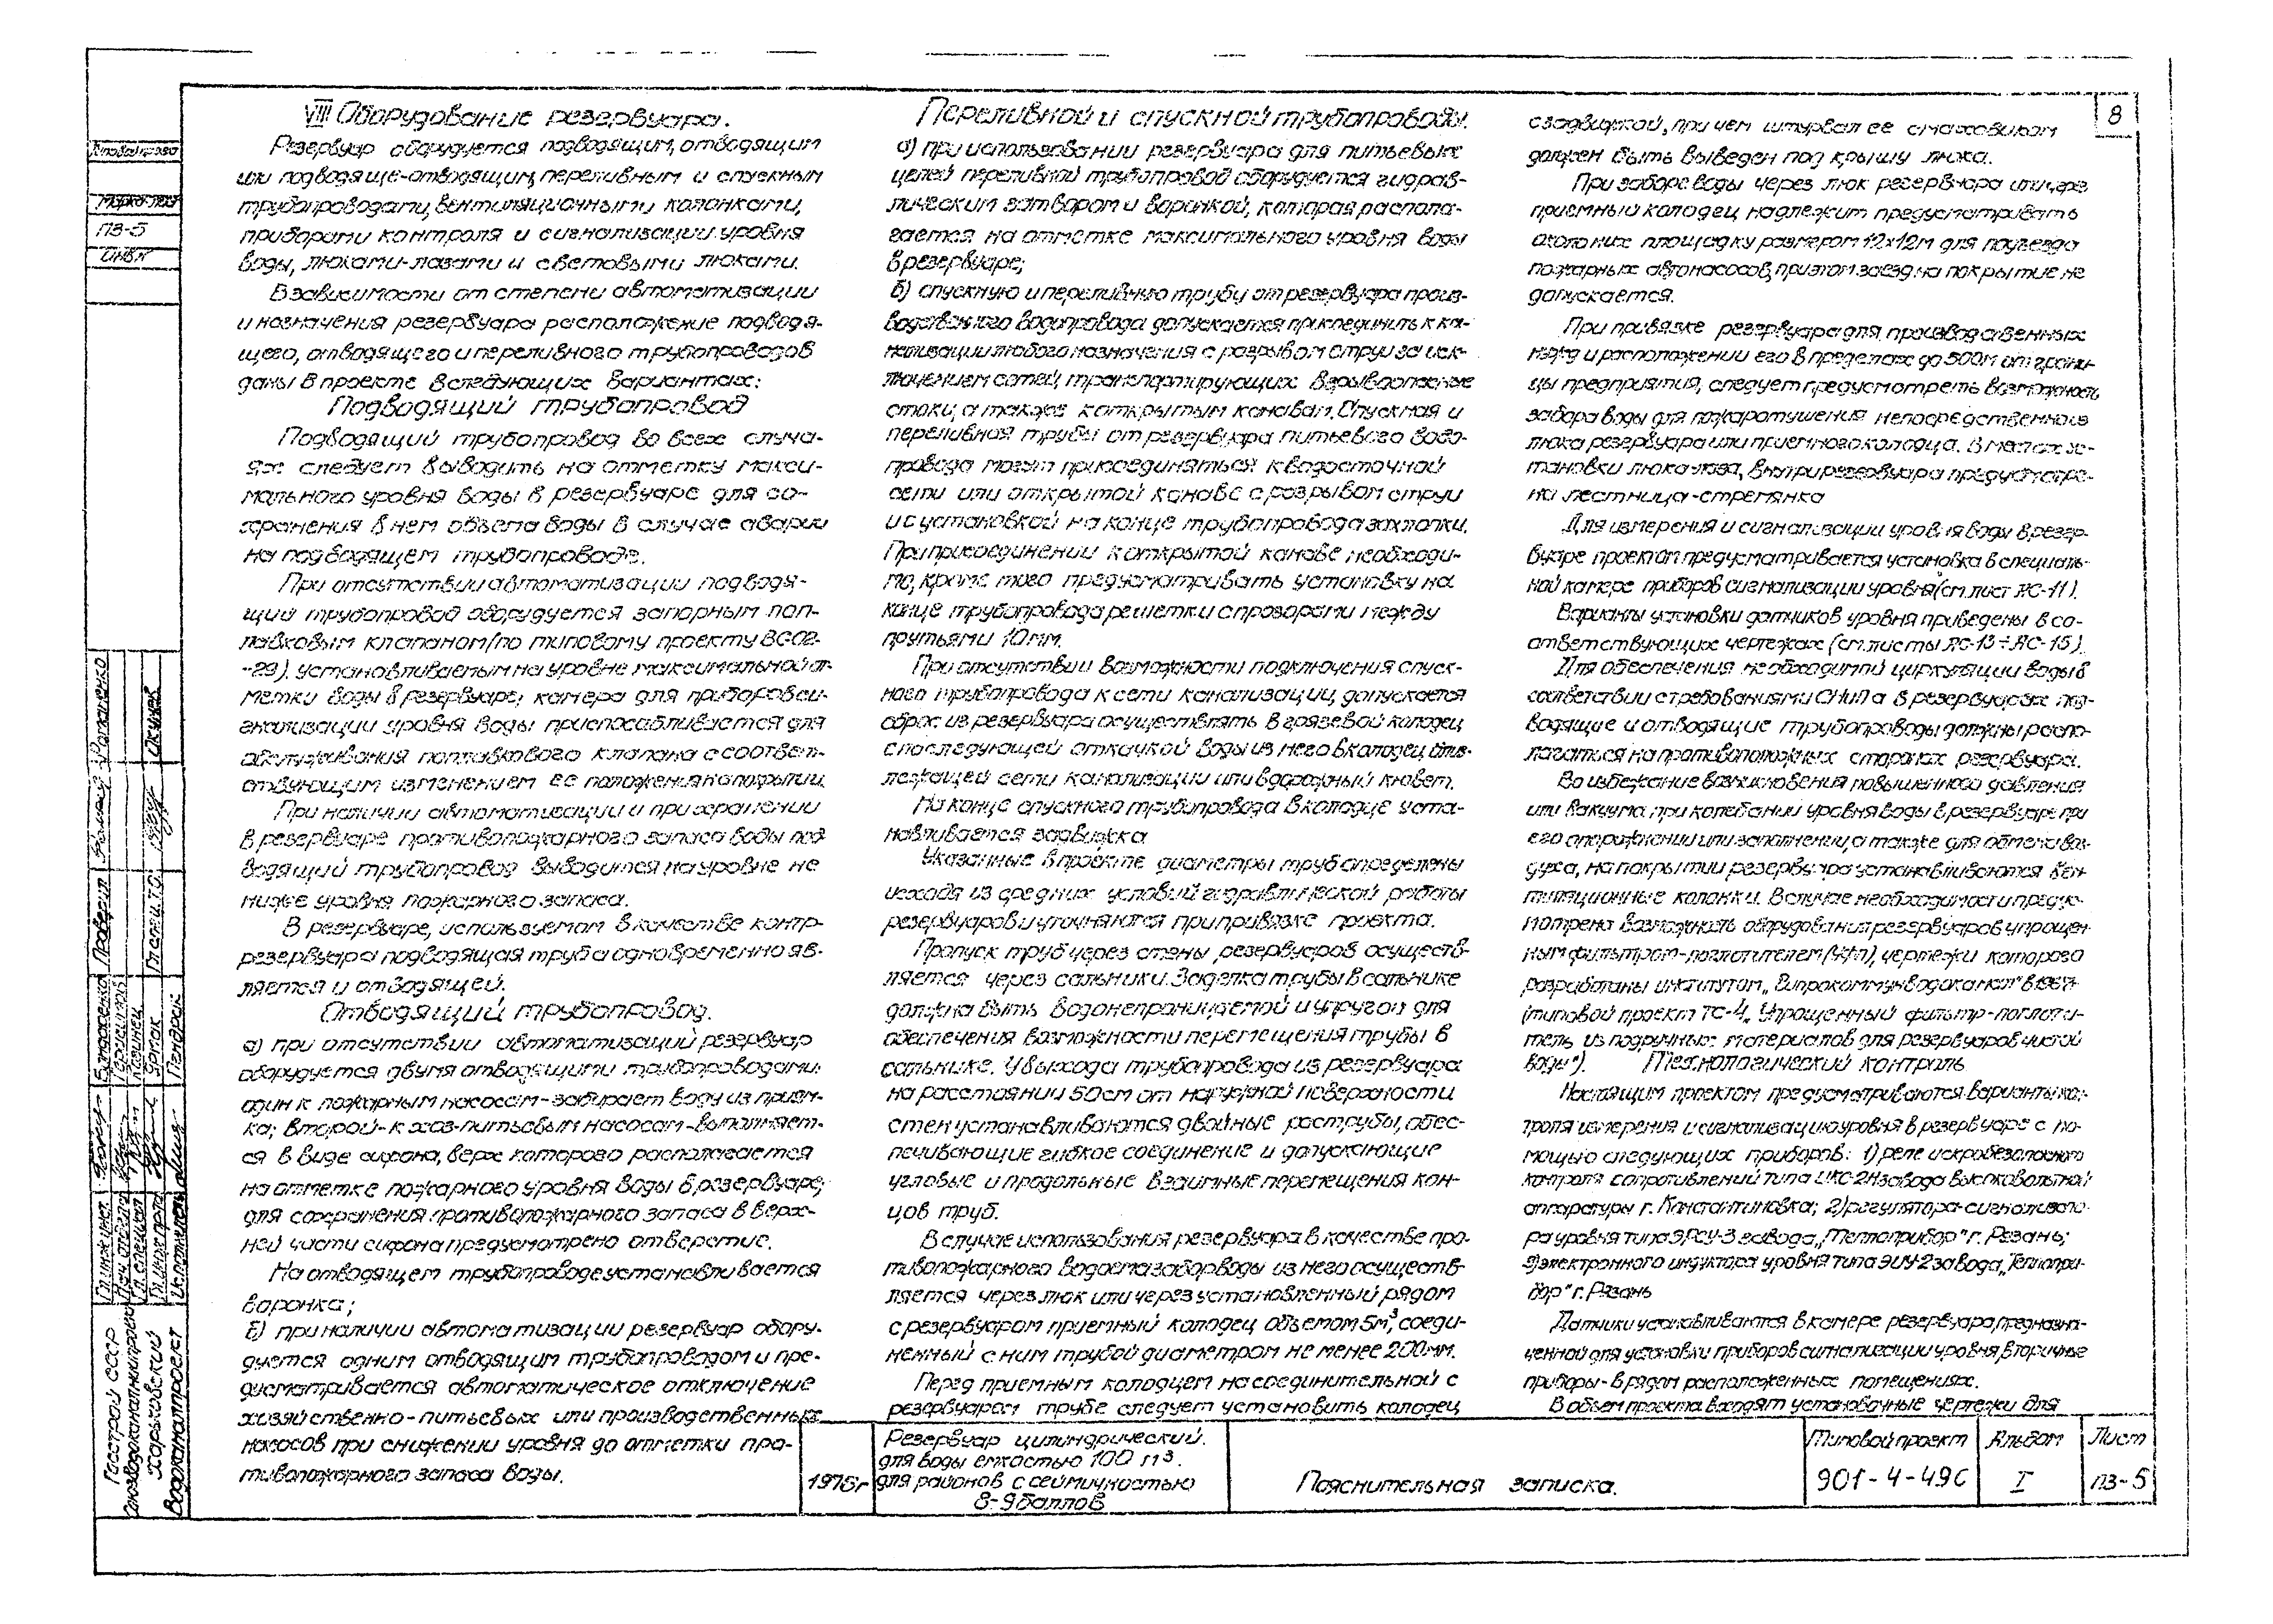 8
VIII Оборудование резервуара.
Резервуар оборудуется подводящим, отводящим
или подводяще-отводящим, переливным и спускным
трубопроводами, вентиляционными колонками,
приборами контроля и сигнализации уровня
воды, люками-лазами и световыми люками.
В зависимости от степени автоматизации
и назначения резервуара расположение подводя-
щего, отводящего и переливного трубопроводов
даны в проекте в следующих вариантах:
Подводящий трубопровод
Подводящий трубопровод во всех случа-
ях следует выводить на отметку макси-
мального уровня воды в резервуаре для со-
хранения в нем объема воды в случае аварии
на подводящем трубопроводе.
При отсутствии автоматизации подводя-
щий трубопровод оборудуется запорным поп-
лавковым клапаном/по типовому проекту ВС-02-
-29). устанавливаемым на уровне максимальной от-
метки воды в резервуаре; камера для приборов си-
гнализации уровня воды приспосабливается для
обслуживания поплавкового клапана с соответ-
ствующим изменением ее положения на покрытии.
При наличии автоматизации и при хранении
в резервуаре противопожарного запаса воды под-
водящий трубопровод выводится на уровне не
ниже уровня пожарного запаса.
В резервуаре, используемом в качестве контр-
резервуара подводящая труба одновременно яв-
ляется и отводящей.
Отводящий трубопровод.
а) при отсутствии автоматизаций резервуар
оборудуется двумя отводящими трубопроводами:
один к пожарным насосам-забирает воду из приям-
ка; второй-к хоз-питьевым насосам-выполняет-
ся в виде сифона, верх которого располагается
на отметке пожарного уровня воды в резервуаре;
для сохранения противопожарного запаса в верх-
ней части сифона предусмотрено отверстие.
На отводящем трубопроводе устанавливается
воронка;
б) при наличии автоматизации резервуар обору-
дуется одним отводящим трубопроводом и пре-
дусматривается автоматическое отключение
хозяйственно-питьевых или производственных
насосов при снижении уровня до отметки про-
тивопожарного запаса воды.
Переливной и спускной трубопроводы.
а) при использовании резервуара для питьевых
целей переливной трубопровод оборудуется гидрав-
лическим затвором и воронкой, которая распола-
гается на отметке максимального уровня воды
в резервуаре;
б) спускную и переливную трубу от резервуара произ-
водственного водопровода допускается присоединить к ка-
нализации любого назначения с разрывом струи за иск-
лючением сетей, транспортирующих взрывоопасные
стоки, а также к открытым канавам. Спускная и
переливная трубы от резервуара питьевого водо-
провода могут присоединяться к водосточной
сети или открытой канаве с разрывом струи
и с установкой на конце трубопровода захлопки.
При присоединении к открытой канаве необходи-
мо, кроме того предусматривать установку на
конце трубопровода решетки с прозорами между
прутьями 10мм.
При отсутствии возможности подключения спуск-
ного трубопровода к сети канализации, допускается
сброс из резервуара осуществлять в грязевой колодец
с последующей откачкой воды из него в колодец бли-
лежащей сети канализации или в дорожный кювет.
На конце спускного трубопровода в колодце уста-
навливается задвижка
Указанные в проекте диаметры труб определены
исходя из средних условий гидравлической работы
резервуаров и уточняются при привязке проекта.
Пропуск труб через стены резервуаров осуществ-
ляется через сальники. Заделка трубы в сальнике
должна быть водонепроницаемой и упругой для
обеспечения возможности перемещения трубы в
сальнике. У выхода трубопровода из резервуара
на расстоянии 50см от наружной поверхности
стен устанавливаются двойные раструбы, обес-
печивающие гибкое соединение и допускающие
угловые и продольные взаимные перемещения кон-
цов труб.
В случае использования резервуара в качестве про-
тивопожарного водоема забор воды из него осуществ-
ляется через люк или через установленный рядом
с резервуаром приемный колодец объемом 5м³, соеди-
ненный с ним трубой диаметром не менее 200мм.
Перед приемным колодцем на соединительной с
резервуаром трубе следует установить колодец
с задвижкой, при чем штурвал ее с маховиком
должен быть выведен под крышу люка.
При заборе воды через люк резервуара или через
приемный колодец надлежит предусматривать
около них площадку размером 12х12м для подъезда
пожарных автонасосов, при этом заезд на покрытие не
допускается.
При привязке резервуара для производственных
нужд и расположении его в пределах до 500м от грани-
цы предприятия, следует предусмотреть возможность
забора воды для пожаротушения непосредственно из
люка резервуара или приемного колодца. В местах ус-
тановки люка-лаза, внутри резервуара предусмотре-
на лестница-стремянка
Для измерения и сигнализации уровня воды в резер-
вуаре проектом предусматривается установка в специаль-
ной камере приборов сигнализации уровня (см. лист АС-11).
Варианты установки датчиков уровня приведены в со-
ответствующих чертежах (см. листы АС-13÷АС-15).
Для обеспечения необходимой циркуляции воды в
соответствии с требованиями СНиПа в резервуарах под-
водящие и отводящие трубопроводы должны распо-
лагаться на противоположных сторонах резервуара.
Во избежание возникновения повышенного давления
или вакуума при колебании уровня воды в резервуаре при
его опорожнении или заполнении, а также для обмена воз-
духа, на покрытии резервуара устанавливаются вен-
тиляционные колонки. В случае необходимости предус-
мотрена возможность оборудования резервуаров упрощен-
ным фильтром-поглотителем (УФП), чертежи которого
разработаны институтом „Гипрокоммунводоканал" в 1967г.
(типовой проект ТС-4„ Упрощенный фильтр-поглоти-
тель из подручных материалов для резервуаров чистой
воды").
Технологический контроль
Настоящим проектом предусматриваются варианты кон-
троля измерения и сигнализацию уровня в резервуаре с по-
мощью следующих приборов: 1) реле искробезопасного
контроля сопротивлений типа ИКС-2Н завода высоковольтной
аппаратуры г. Константиновка; 2) регулятора-сигнализато-
ра уровня типа ЭРСУ-3 завода „Теплоприбор" г. Рязань;
3) электронного индуктора уровня типа ЭИУ-2 завода „Теплопри-
бор" г. Рязань
Датчики устанавливаются в камере резервуара, предназна-
ченной для установки приборов сигнализации уровня, вторичные
приборы-в рядом расположенных помещениях.
В объем проекта входят установочные чертежи для
1976г
Резервуар цилиндрический.
для воды емкостью 100 м³.
для районов с сейсмичностью
8-9 баллов
Пояснительная записка.
Типовой проект
901-4-49с
Альбом
I
Лист
ПЗ-5
ПЗ-5
ИНВ.N
Госстрой СССР
Союзводоканалниипроект
Харьковский
Водоканалпроект